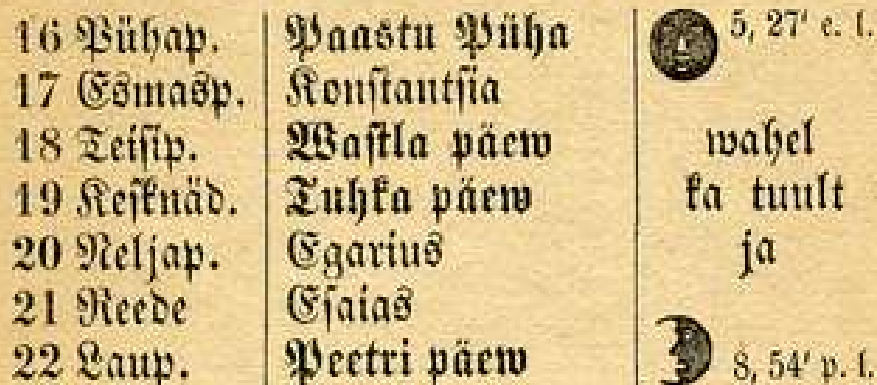 16 Pühap. Paastu Püha 5, 27' e. l.
17 Esmasp. Konstantsia
18 Teisip. Wastla päew wahel
19 Kesknäd. Tuhka päew ka tuult
20 Neljap. Egarius ja
21 Reede Esaias
22 Laup. Peetri päew 8, 54' p. l.